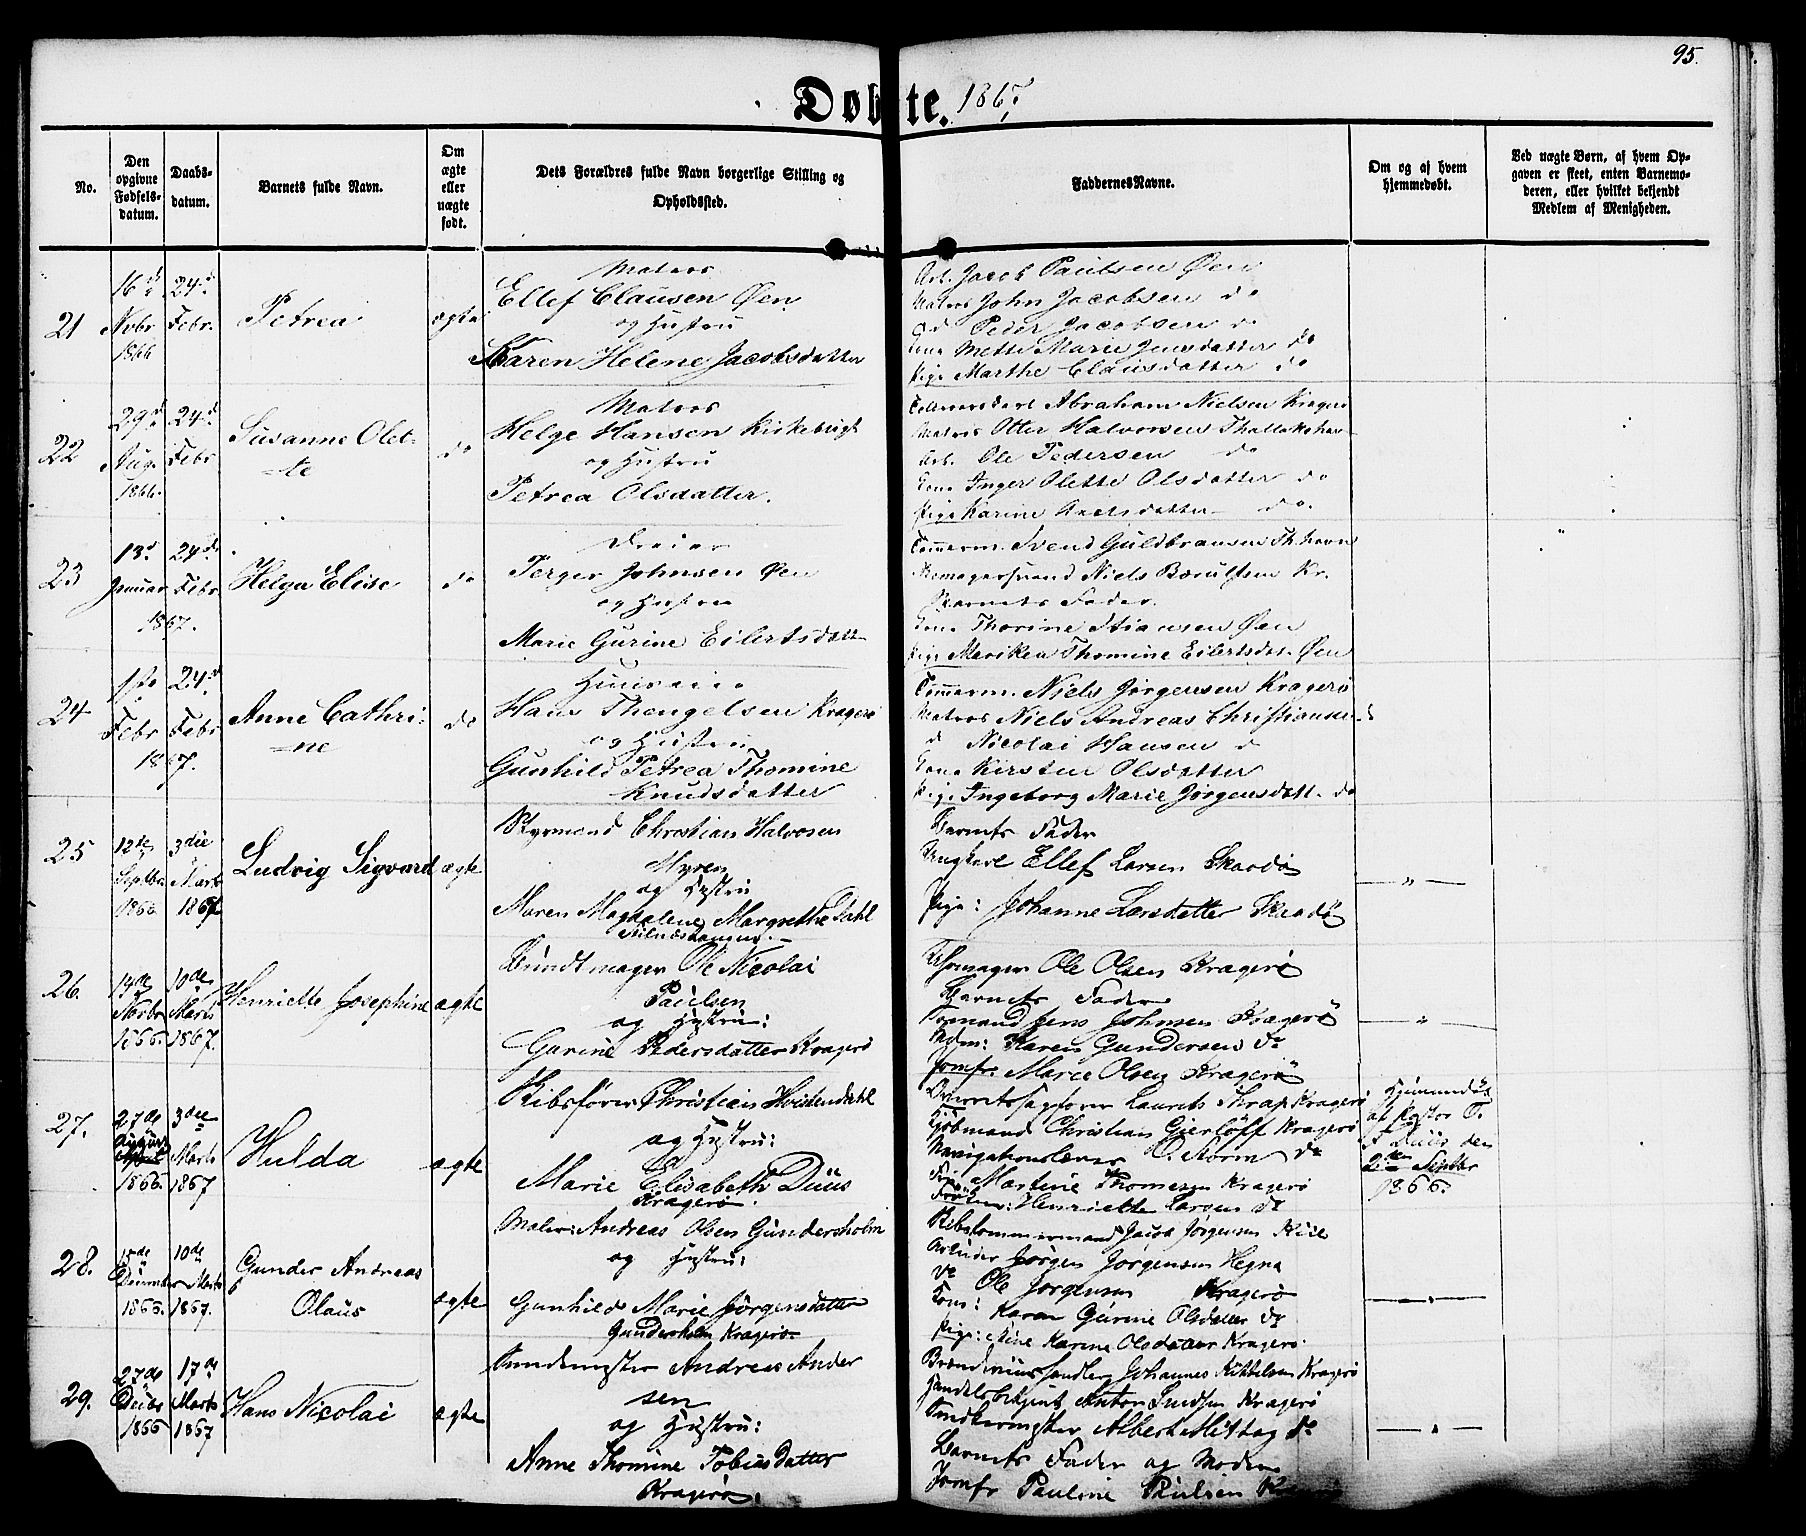 95.
Døbte. 1867.
No.
Den opgivne Fødsels-datum.
Daabs-datum.
Barnets fulde Navn.
Om ægte eller uægte født.
Dets Forældres fulde Navn borgerlige Stilling og Opholdssted.
Faddernes Navne.
Om og af hvem hjemmedøbt.
Ved uægte Børn, af hvem Op-
gaven er skeet, enten Barnemo-
deren, eller hvilket bekjendt
Medlem af Menigheden.
21
16de Novbr 1866
24d. Febr.
Petrea
ægte
Matros
Ellef Clausen Øen
og Hustru
Karen Helene Jacobsdatter
Arb. Jacob Paulsen Øen
Matros John Jacobsen do
do Peder Jacobsen do
Kone Mette Marie Jensdatter do
Pige Marthe Clausdatter do
22
29d. Aug. 1866.
24d. Febr
Susanne Olet-
te
do
Matros
Helge Hansen Kirkebugt
og Hustru
Petrea Olsdatter.
Abraham Nielsen Kragerø
Matros Otter Halvorsen
Arb. Ole Pedersen do
Kone Inger Olette Olsdatter do
Pige Karine do.
23
13d. Januar 1867.
24de Febr
Helga Elise
do
Dreier
Terger Johnsen Øen
og Hustru
Marie Gurine Eilertsdatt
Tømmerm. Svend Guldbransen Th.havn
Niels Kr.
Barnets Fader.
Kone Thorine Stiansen Øen
Pige Mariken Thomine Eilertsdat. Øen
24
1ste Febr 1867.
24d. Febr
Anne Cathri-
ne
do
Huuseier
Hans Thengelsen Kragerø
og Hustru
Gunhild Petrea Thomine
Knudsdatter
Tømmerm. Niels Jørgensen Kragerø
Matros Niels Andreas Christiansen d
d Nicolai Hansen d
Kone Kirsten Olsdatter
Pige Ingeborg Marie Jørgensdatt. do
25
12te Septbr 1866
3die Marts 1867
Ludvig Sigvard
ægte
Styrmand Christian Halvorsen
Myren
og Hustru
Maren Magdalene Margrethe Dahl
Barnets Fader
Ungkarl Ellef Larsen Skaadø
Pige: Johanne Larsdatter Skaadø
"
26.
14de Novbr 1866.
10de Marts 1867.
Henriette Josephine
ægte
Bundtmager Ole Nicolai
Paulsen
og Hustru:
Gurine Pedersdatter Kragerø
Ole Olsen Kragerø
Barnets Fader
Formand Jens Johnsen Kragerø
Mdm: Karen Gundersen do
Jomfr. Marie Olsen Kragerø
"
27.
27de August 1866.
3die Marts 1867
Hulda
ægte
Skibsfører Christian Hvistendahl
og Hustru:
Marie Elisabeth Duus
Kragerø.
Overretssagfører Laurits Thrap Kragerø
Kjøbmand Christian Gierløff Kragerø
Navigationslærer O. Storm do
Martine Thomesen Kragerø
Frøken: Henriette Larsen do
Hjemmedøbt
af Pastor
den
2den Septbr
1866.
28.
15de December 1866.
10de Marts 1867.
Gunder Andreas
Olaus
ægte
Matros: Andreas Olsen Gundersholm
og Hustru:
Gunhild Marie Jørgensdatter
Gundersholm Kragerø
Skibstømmermand Jacob Jørgensen
Arbeider Jørgen Jørgensen Hegna
do Ole Jørgensen Kragerø
Kone: Karen Gurine Olsdatter do
Pige: Karine Olsdatter Kragerø.
"
29.
27de Decbr 1866
17de Marts 1867
Hans Nicolai
ægte
Andreas Ander
sen
og Hustru:
Anne Thomine Tobiasdatter
Kragerø.
Johannes Kittelsen Kragerø
Handelsbetjent Anton Kragerø
Snedkermester Albert Mittag do
Barnets Fader og Moder
Jomfr Pauline Paulsen
"